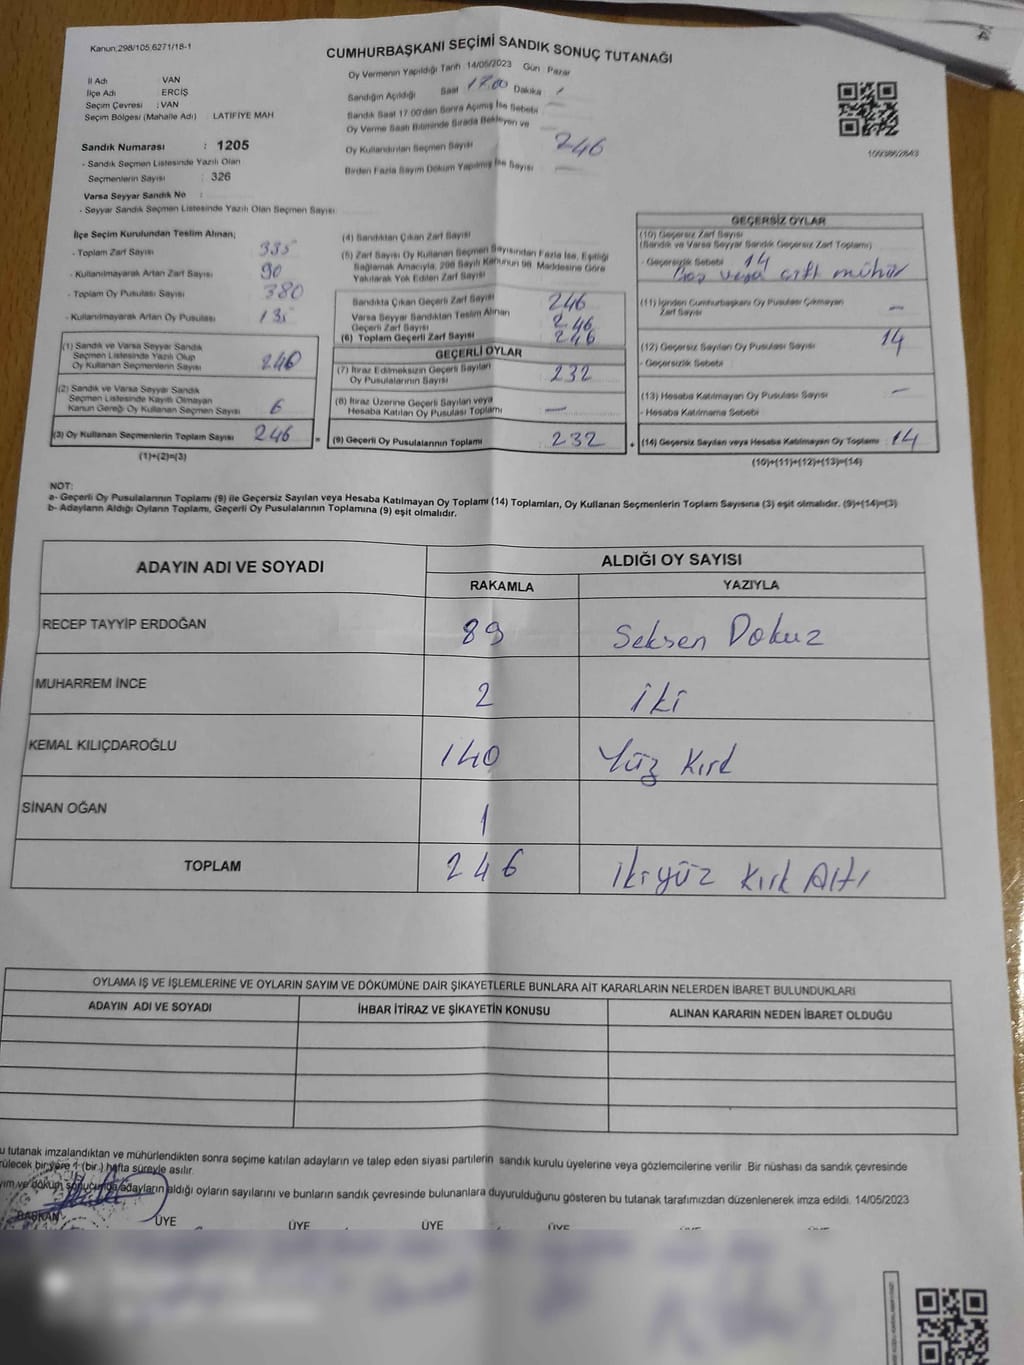 Kanun;298/105,6271/18-1
CUMHURBAŞKANI SEÇİMİ SANDIK SONUÇ TUTANAĞI
İl Adı VAN
İlçe Adı ERCİŞ
Seçim Çevresi : VAN
Seçim Bölgesi (Mahalle Adı) LATİFİYE MAH
Sandık Numarası : 1205
- Sandık Seçmen Listesinde Yazılı Olan
Seçmenlerin Sayısı : 326
Varsa Seyyar Sandık No :
- Seyyar Sandık Seçmen Listesinde Yazılı Olan Seçmen Sayısı
Oy Vermenin Yapıldığı Tarih :14/05/2023 Gün : Pazar
Sandığın Açıldığı Saat 17.00 Dakika :
Sandık Saat 17:00'den Sonra Açılmış İse Sebebi
Oy Verme Saati Bitiminde Sırada Bekleyen ve
Oy Kullandırılan Seçmen Sayısı 246
Birden Fazla Sayım Döküm Yapılmış İse Sayısı —
İlçe Seçim Kurulundan Teslim Alınan;
- Toplam Zarf Sayısı : 335
- Kullanılmayarak Artan Zarf Sayısı : 90
- Toplam Oy Pusulası Sayısı : 380
- Kullanılmayarak Artan Oy Pusulası : 135
(1) Sandık ve Varsa Seyyar Sandık
Seçmen Listesinde Yazılı Olup
Oy Kullanan Seçmenlerin Sayısı : 240
(2) Sandık ve Varsa Seyyar Sandık
Seçmen Listesinde Kayıtlı Olmayan
Kanun Gereği Oy Kullanan Seçmen Sayısı : 6
(3) Oy Kullanan Seçmenlerin Toplam Sayısı : 246
(1)+(2)=(3)
(4) Sandıktan Çıkan Zarf Sayısı
(5) Zarf Sayısı Oy Kullanan Seçmen Sayısından Fazla İse, Eşitliği
Sağlamak Amacıyla, 298 Sayılı Kanunun 98. Maddesine Göre
Yakılarak Yok Edilen Zarf Sayısı
Sandıkta Çıkan Geçerli Zarf Sayısı 246
Varsa Seyyar Sandıktan Teslim Alınan
Geçerli Zarf Sayısı 246
(6) Toplam Geçerli Zarf Sayısı 246
GEÇERLİ OYLAR
(7) İtiraz Edilmeksizin Geçerli Sayılan
Oy Pusulalarının Sayısı : 232
(8) İtiraz Üzerine Geçerli Sayılan veya
Hesaba Katılan Oy Pusulası Toplamı : —
= (9) Geçerli Oy Pusulalarının Toplamı : 232
GEÇERSİZ OYLAR
(10) Geçersiz Zarf Sayısı
(Sandık ve Varsa Seyyar Sandık Geçersiz Zarf Toplamı)
- Geçersizlik Sebebi : 14
Boş veya çift mühür
(11) İçinden Cumhurbaşkanı Oy Pusulası Çıkmayan
Zarf Sayısı —
(12) Geçersiz Sayılan Oy Pusulası Sayısı 14
- Geçersizlik Sebebi :
(13) Hesaba Katılmayan Oy Pusulası Sayısı —
- Hesaba Katılmama Sebebi :
+ (14) Geçersiz Sayılan veya Hesaba Katılmayan Oy Toplamı : 14
(10)+(11)+(12)+(13)=(14)
NOT:
a- Geçerli Oy Pusulalarının Toplamı (9) ile Geçersiz Sayılan veya Hesaba Katılmayan Oy Toplamı (14) Toplamları, Oy Kullanan Seçmenlerin Toplam Sayısına (3) eşit olmalıdır. (9)+(14)=(3)
b- Adayların Aldığı Oyların Toplamı, Geçerli Oy Pusulalarının Toplamına (9) eşit olmalıdır.
ADAYIN ADI VE SOYADI ALDIĞI OY SAYISI
RAKAMLA YAZIYLA
RECEP TAYYİP ERDOĞAN 89 Seksen Dokuz
MUHARREM İNCE 2 iki
KEMAL KILIÇDAROĞLU 140 Yüz Kırk
SİNAN OĞAN 1
TOPLAM 246 ikiyüz Kırk Altı
OYLAMA İŞ VE İŞLEMLERİNE VE OYLARIN SAYIM VE DÖKÜMÜNE DAİR ŞİKAYETLERLE BUNLARA AİT KARARLARIN NELERDEN İBARET BULUNDUKLARI
ADAYIN ADI VE SOYADI İHBAR İTİRAZ VE ŞİKAYETİN KONUSU ALINAN KARARIN NEDEN İBARET OLDUĞU
u tutanak imzalandıktan ve mühürlendikten sonra seçime katılan adayların ve talep eden siyasi partilerin sandık kurulu üyelerine veya gözlemcilerine verilir. Bir nüshası da sandık çevresinde
rülecek bir yere 1 (bir.) hafta süreyle asılır.
yım ve döküm sonucunda adayların aldığı oyların sayılarını ve bunların sandık çevresinde bulunanlara duyurulduğunu gösteren bu tutanak tarafımızdan düzenlenerek imza edildi. 14/05/2023
BAŞKAN ÜYE ÜYE ÜYE ÜYE